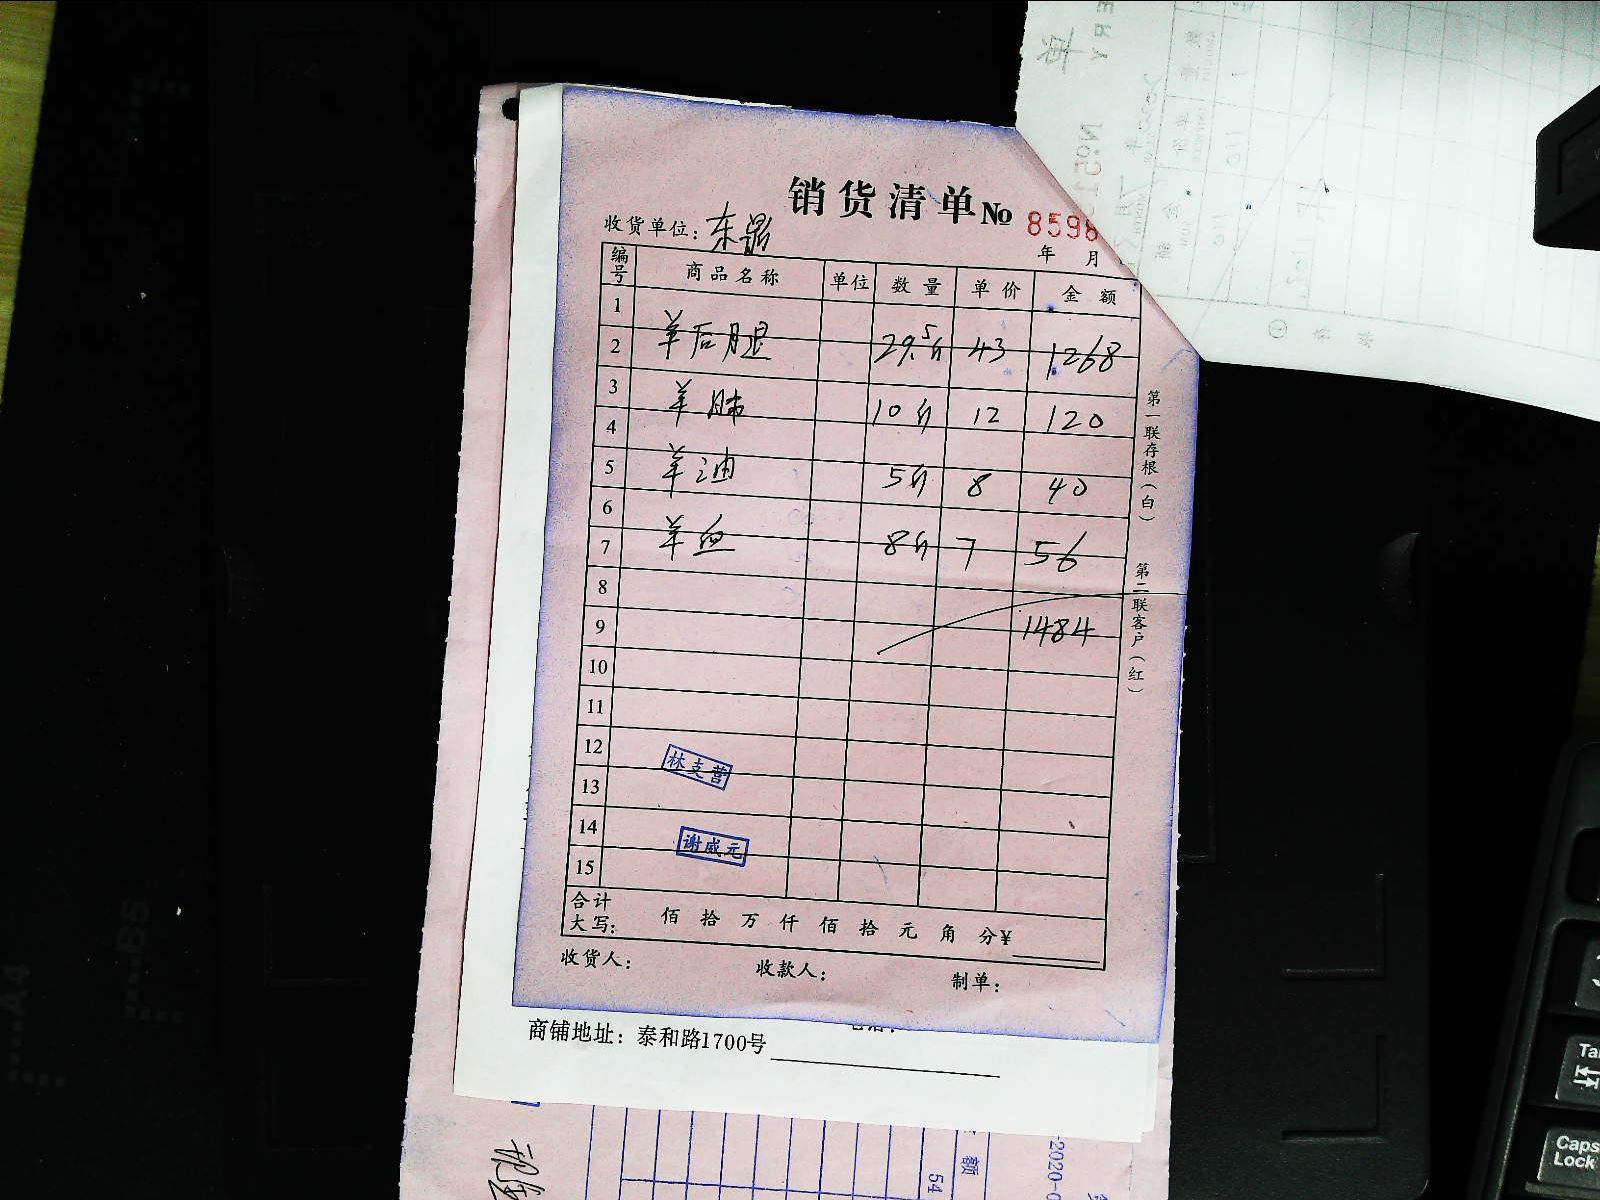 销货清单 No 8598
收货单位: 东鼎
年 月
编号 商品名称 单位 数量 单价 金额
1
2 羊后腿 29.5斤 43 1268
3
羊肺 10斤 12 120
4
5 羊油 5斤 8 40
6
7 羊血 8斤 7 56
8
9 1484
10
11
12
林支营
13
14
谢威元
15
合计大写: 佰 拾 万 仟 佰 拾 元 角 分¥
收货人: 收款人: 制单:
第一联存根(白)
第二联客户(红)
商铺地址: 泰和路1700号
额
54
Caps Lock